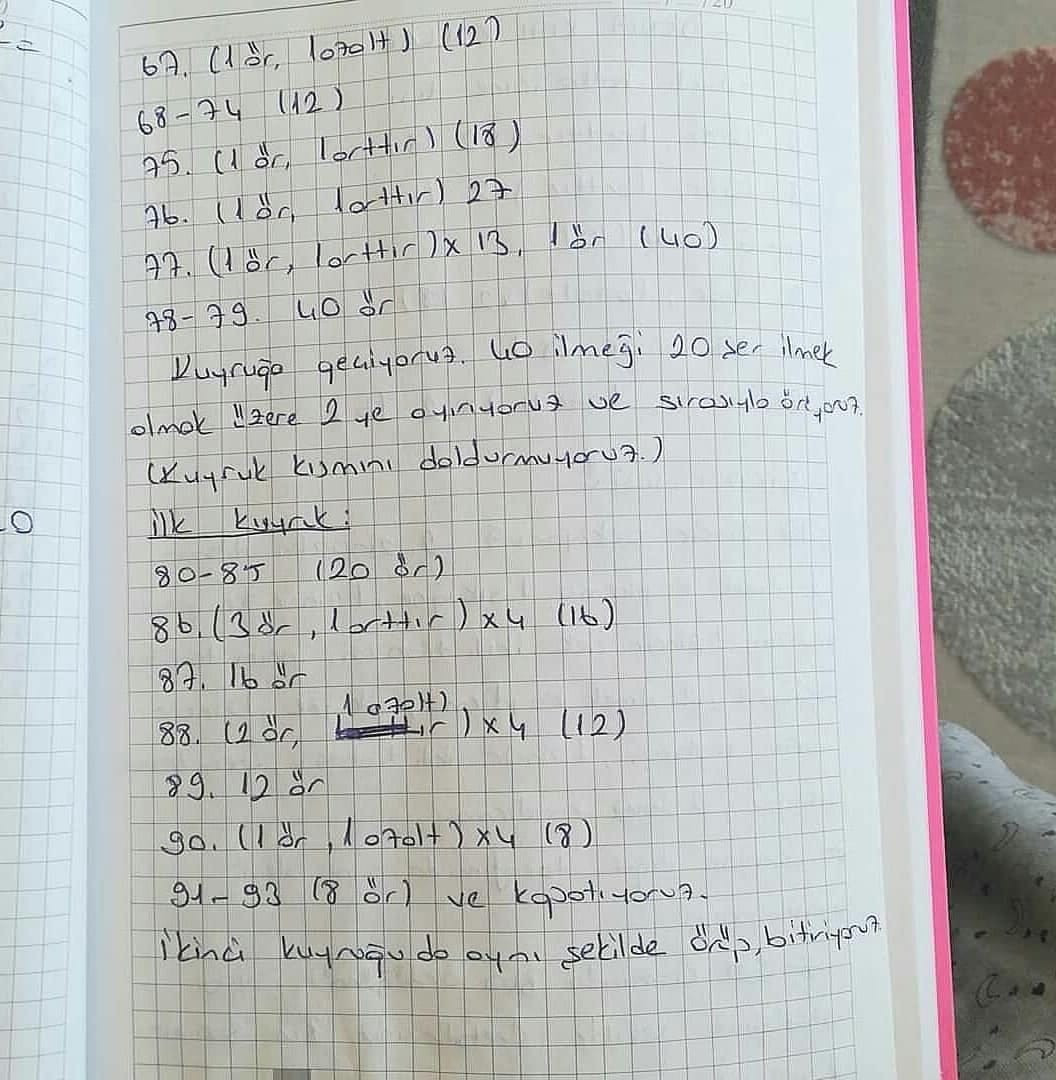 67. (1 ör, 1azalt) (12)
68-74 (12)
75. (1 ör, 1arttır) (18)
76. (1 ör, 1arttır) 27
77. (1 ör, 1arttır) x 13, 1 ör (40)
78-79. 40 ör
Kuyruğa geçiyoruz. 40 ilmeği 20 şer ilmek
olmak üzere 2 ye ayırıyoruz ve sırasıyla örüyoruz.
(Kuyruk kısmını doldurmuyoruz.)
İlk kuyruk:
80-85 (20 ör)
86. (3 ör, 1arttır) x4 (16)
87. 16 ör
88. (2 ör, 1 azalt) x4 (12)
89. 12 ör
90. (1 ör, 1 azalt) x4 (8)
91-93 (8 ör) ve kapatıyoruz.
İkinci kuyruğu da aynı şekilde örüp, bitiriyoruz.